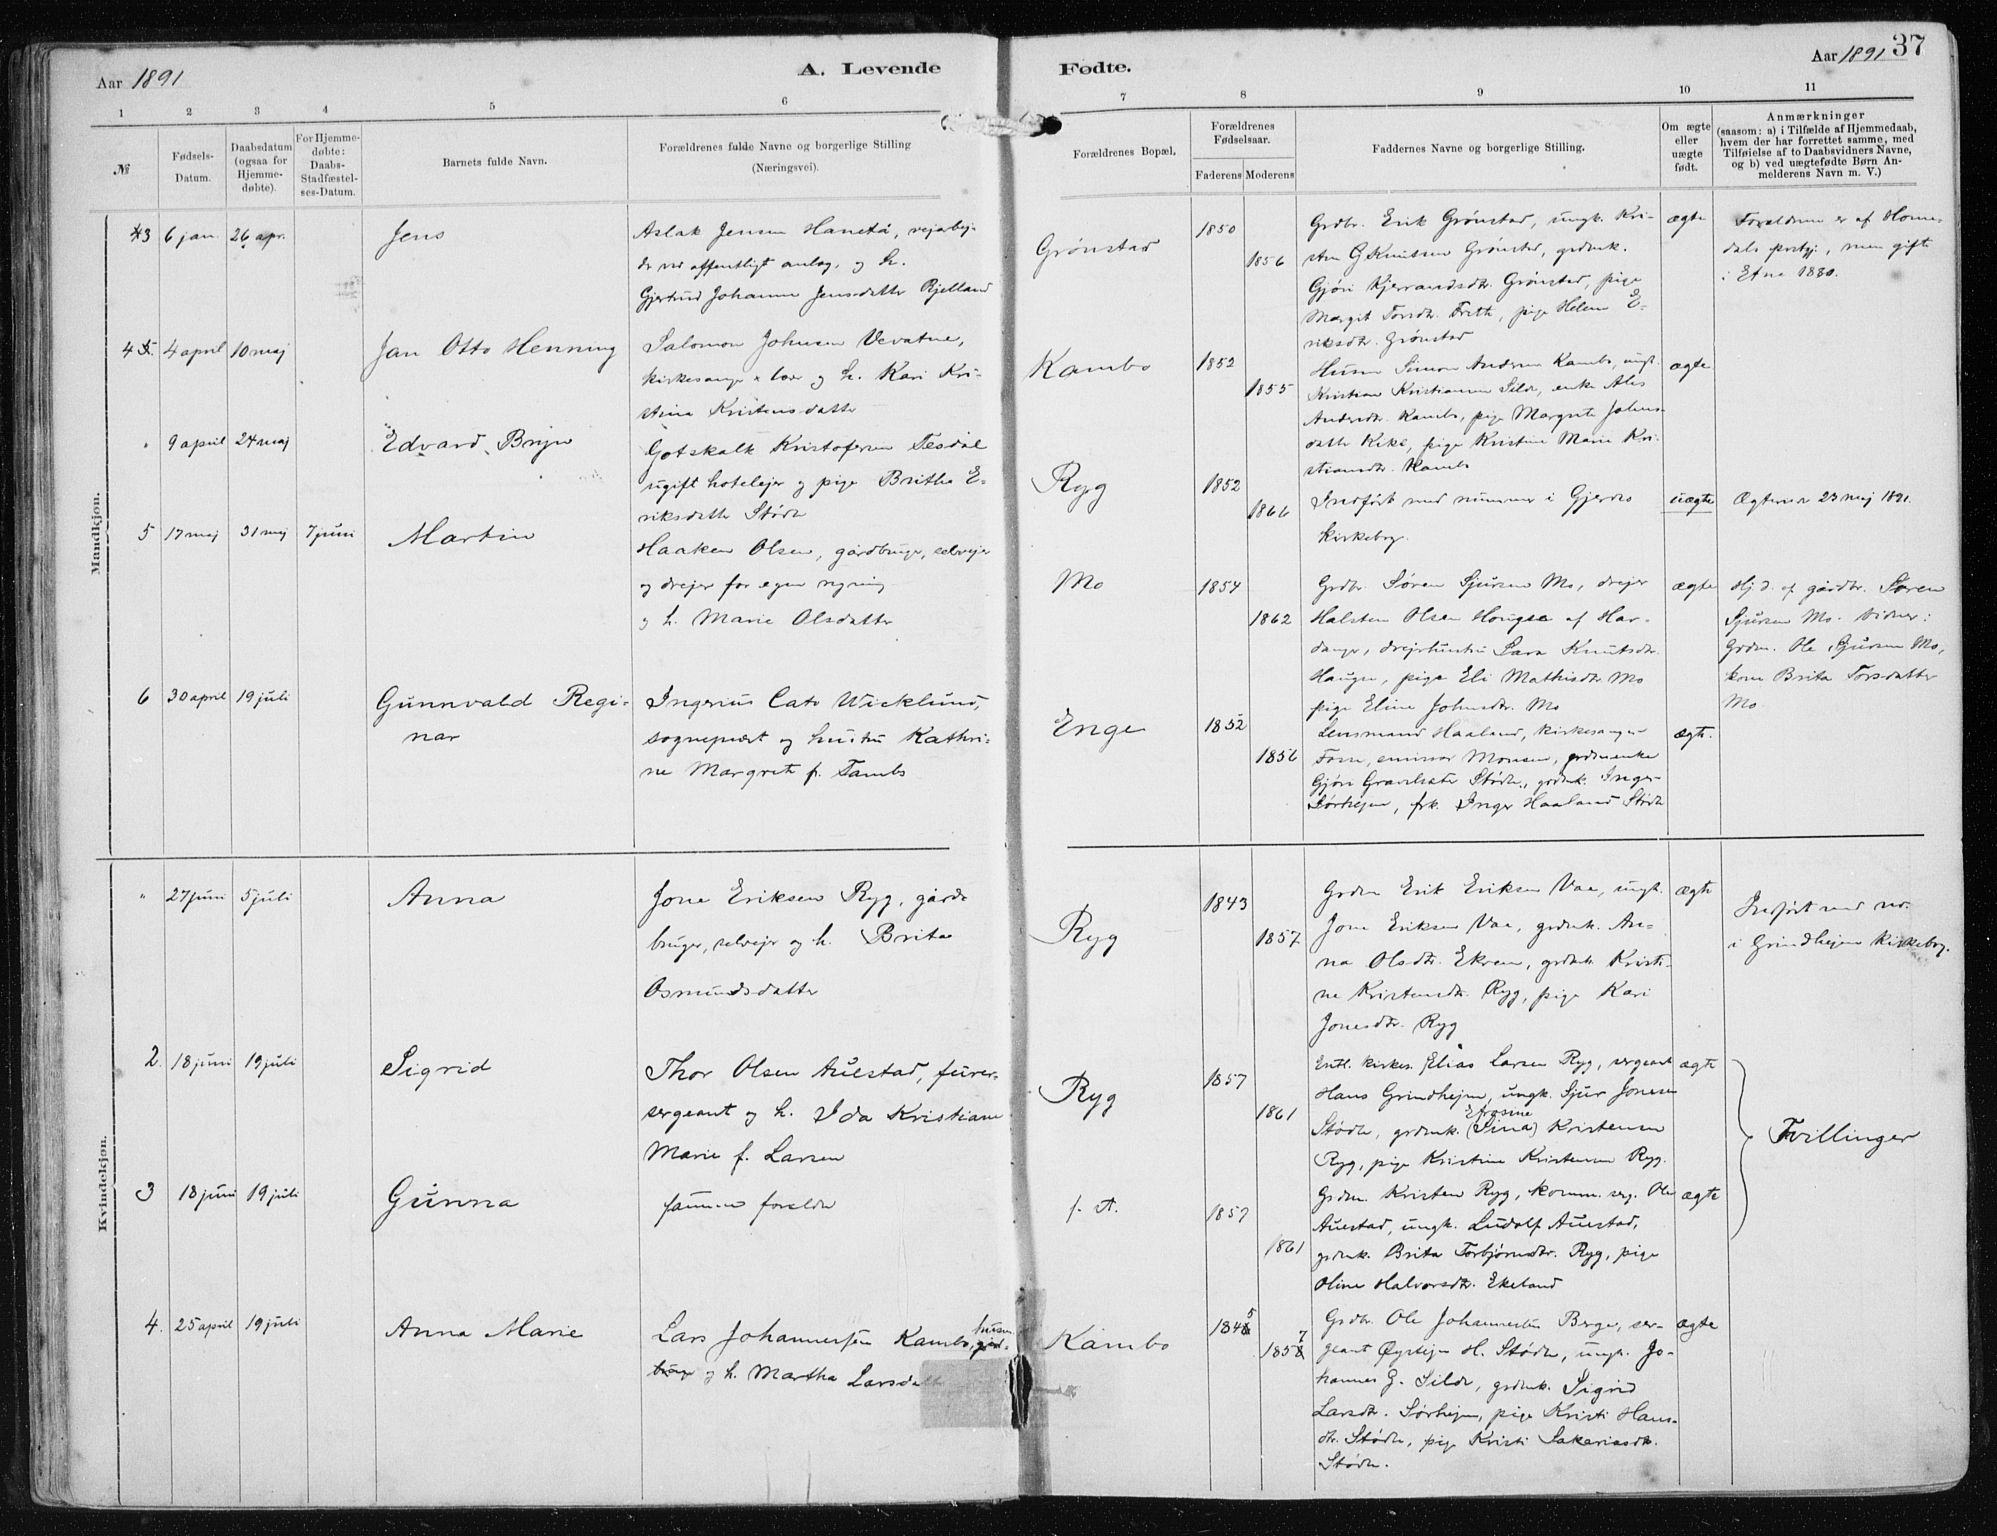 Aar 1891
A. Levende
Fødte.
Aar 1891
37
1 2 3 4 5 6 7 8 9 10 11
№
Fødsels-
Datum.
Daabsdatum
(ogsaa for
Hjemme-
døbte).
For Hjemme-
døbte:
Daabs-
Stadfæstel-
ses-Datum.
Barnets fulde Navn.
Forældrenes fulde Navne og borgerlige Stilling
(Næringsvei).
Forældrenes Bopæl.
Forældrenes
Fødselsaar.
Faderens Moderens
Faddernes Navne og borgerlige Stilling.
Om ægte
eller
uægte
født.
Anmærkninger
(saasom: a) i Tilfælde af Hjemmedaab,
hvem der har forrettet samme, med
Tilføielse af to Daabsvidners Navne,
og b) ved uægtefødte Børn An-
melderens Navn m. V.)
Mandkjøn.
3 6 jan 26 apr. Jens
Aslak Jensen
offentligt anlæg, og h.
Gjertrud Johanne Jensdatter
Grønstad
1850
1856
Grdbr. Erik Grønstad, ungk. Kri-
Knutsen Grønstad, grdmk.
Gjøri Grønstad, pige
Margit Torsdtr. pige Helene E-
riksdtr. Grønstad
ægte
Forældrene er af Home-
dals men gift
i Etne 1880.
4 4 april 10 maj Jan Otto Henning
Salomon Johnsen Vevatne,
kirkesanger og h. Kari Kri-
stine Kristensdatter
Kambo
1852
1855
Husm Simon Andersen Kambo, ungk.
Kristian Kristiansen Silde, enke
Andersdtr. Kambo, pige Margrete Johns-
datter Kike, pige Kristine Marie Kri-
stiansdtr. Kambo
ægte
" 9 april 24 maj Edvard Bryn
Gotskalk Kristofersen Tesdal
ugift hotelejer og pige Britha E-
riksdatter Stødle
Ryg
1852
1866
Indført med nummer i Gjerdes
kirkebog.
uægte
23 maj 1891.
5 17 maj 31 maj 7 juni Martin
Haaken Olsen, gårdbruger, selvejer
og drejer for egen regning
og h. Marie Olsdatter
Mo
1854
1862
Grdbr. Søren Sjursen Mo, drejer
Halsten Olsen Hougse af Har-
danger, drejerhustru Sara Knutsdtr.
Haugse, pige Eli Mathisdtr Mo
pige Eline Johnsdtr. Mo
ægte
Hj.d. af gårdbr. Søren
Sjursen Mo. Vidner:
Grdm. Ole Sjursen Mo,
kone Brita Torsdatter
Mo
6 30 april 19 juli Gunnvald Regi-
nar
Ingerius Cato Wicklund,
sognepræst og hustru Kathri-
ne Margrete f. Tambs
Enge
1852
1856
Lensmand Haaland, kirkesanger
Fosse, emissær Monsen, grdmenke
Gjøri Stødle, grdmk. Inger
Sørhejm, frk. Inger Haaland Stødle
ægte.
Kvindekjøn.
" 27 juni 5 juli Anna
Jone Eriksen Ryg, gård-
bruger, selvejer og h. Brita
Osmundsdatter
Ryg
1843
1857
Grdm Erik Eriksen Vae, ungk.
Jone Eriksen Vae, grdmk. An-
na Olsdtr. Ekren, grdmk. Kristi-
ne Kristensdtr. Ryg, pige Kari
Jonesdtr. Ryg
ægte
Indført med nr.
i Grindhejm kirkebog.
2. 18 juni 19 juli Sigrid
Thor Olsen Auestad, furer-
sergeant og h. Ida Kristiane
Marie f. Larsen
Ryg
1857
1861
Entl. kirkes. Elias Larsen Ryg, sergeant
Hans Grindhejm, ungk. Sjur Jonesen
Efrosine
Stødle, grdmk. (Sina) Kristensen
Ryg, pige Kristine Kristensen Ryg.
ægte
Tvillinger
3 18 juni 19 juli Gunna
samme forældre
1857
1861
Grdm. Kristen Ryg, komm. serg. Ole
Auestad, ungk. Ludolf Auestad,
grdmk. Brita Torbjørnsdtr. Ryg, pige
Oline Halvorsdtr. Ekeland
ægte
4. 25 april 19 juli Anna Marie
Lars Johannessen Kambo, husm.
og h. Martha Larsdatter
Kambo
1845
1857
Grdbr. Ole Johannessen Berge, ser-
geant Øystejn H. Stødle, ungk. Jo-
hannes G. Silde, grdmk. Sigrid
Larsdtr. Sørhejm, pige Kristi Hans-
dtr. Stødle, pige Kristi Sakariasdtr.
Stødle.
ægte